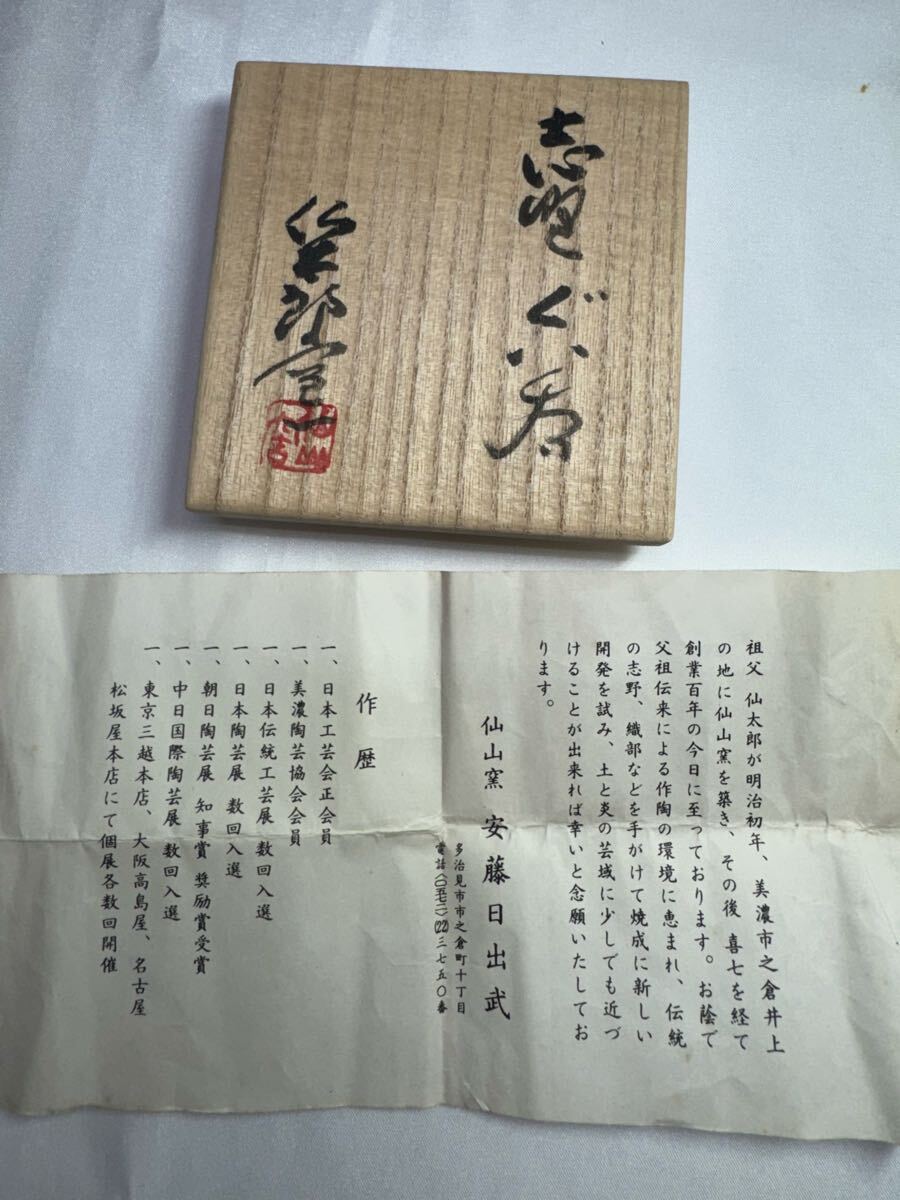 志野
ぐい呑
祖父 仙太郎が明治初年、美濃市之倉井上
の地に仙山窯を築き、その後 喜七を経て
創業百年の今日に至っております。お蔭で
父祖伝来による作陶の環境に恵まれ、伝統
の志野、織部などを手がけて焼成に新しい
開発を試み、土と炎の芸域に少しでも近づ
けることが出来れば幸いと念願いたしてお
ります。
仙山窯 安藤日出武
多治見市市之倉町十丁目
電話〈〇五七二〉(22)三七五〇番
作歴
一、日本工芸会正会員
一、美濃陶芸協会会員
一、日本伝統工芸展 数回入選
一、日本陶芸展 数回入選
一、朝日陶芸展 知事賞 奨励賞受賞
一、中日国際陶芸展 数回入選
一、東京三越本店、大阪高島屋、名古屋
松坂屋本店にて個展各数回開催